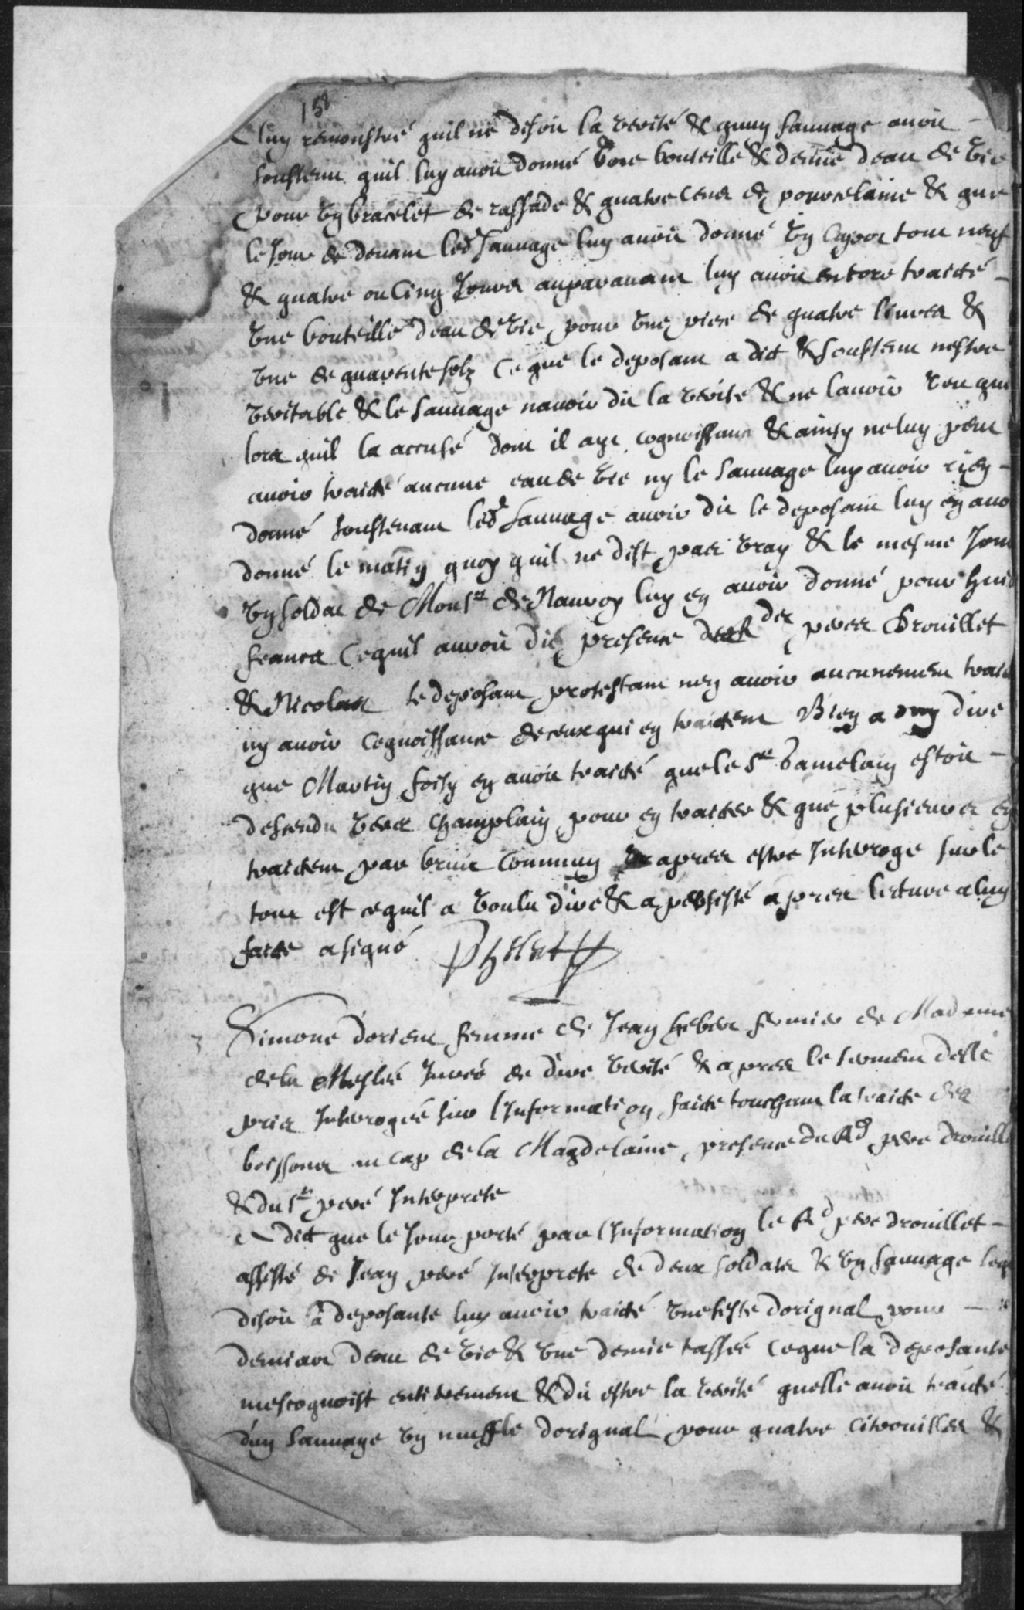 158
A luy remonstré quil ne disoit la verité & quun sauvage avoit
soustenu quil luy avoit donné une bouteille & demie deau de vie
pour un bracelet de rassade & quatre cens de pourselaine & que
le jour de devant led sauvage luy avoit donné un capot tout neuf
& quatre ou cinq jours auparavant luy avoit encore traicté
une bouteille deau de vie pour une piece de quatre livres &
une de quarente solz Ce que le deposant a dict & soustenu nestre
veritable & le sauvage navoir dit la verité & ne lavoir veu que
lors quil la accusé dont il aye cognoissance & ainsy ne luy peut
avoir traicté aucune eau de vie ny le sauvage luy avoir rien
donné soustenant led sauvage avoir dit le deposant luy en avoir
donné le matin quoy quil ne dist pas vray & le mesme jour
un soldat de Monsr de Manroy luy en avoir donné pour huict
francs Ce quil auroit dit presence des peres Drouillet
& Nicolas le deposant protestant nen avoir aucunement traicté
ny avoir cognoissance de ceux qui en traictent Bien a ouy dire
que Martin foisy en avoit traicté que le Sr bamelain estoit
descendu vers Champlain pour en traicter & que plusieurs en
traictent par bruit commun apres estre Interroge sur le
tout est ce quil a voulu dire & a persisté apres lecture a luy
faicte a signé
3 Simone dorient femme de Jean heber fermier de Madame
de la Meslée Jurée de dire verité & apres le serment delle
pris Interrogée sur lInformation faicte touchant la traicte des
boissons au cap de la Magdelaine, presence du Rd pere drouillet
& du Sr peré Interprete
A dict que le jour porté par lInformation le Rd pere drouillet
assisté de Jean peré Interprete de deux soldats & un sauvage lequel
disoit la deposante luy avoir traicté une teste dorignal pour
demiart deau de vie & une demie tassée ce que la deposante
mescognoist entierement & dit estre la verité quelle avoit traicté
dun sauvage un muffle dorignal pour quatre citrouilles &